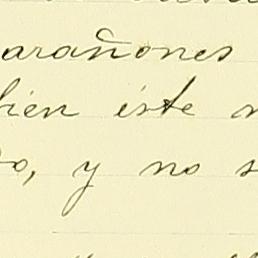 arañones
bien éste n
o, y no s